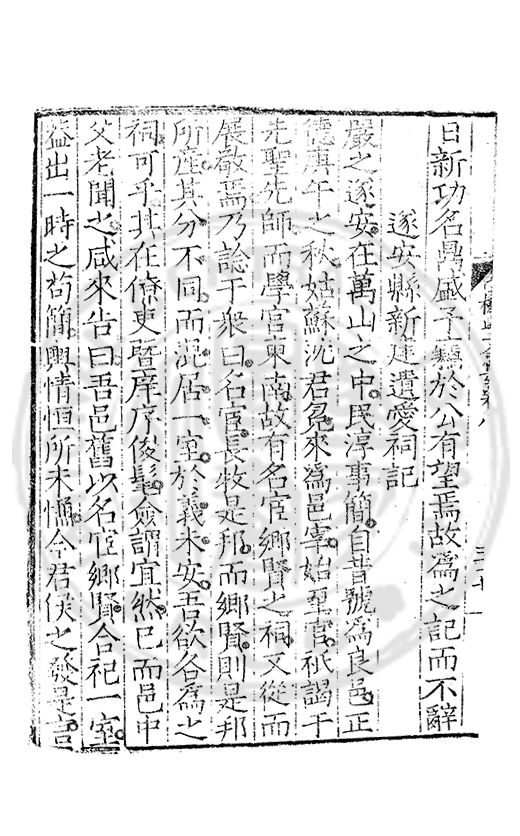 日新功名鼎盛予竊於公有望焉故爲之記而不辭
遂安縣新建遺愛祠記
嚴之遂安在萬山之中民淳事簡自昔號爲良邑正
德庚午之秋姑蘇沈君來爲邑宰始至官祇謁于
先聖先師而學宮東南故有名宦鄉賢之祠又從而
展敬焉乃諗于衆曰名宦長牧是邦而鄉賢則是邦
所產其分不同而混居一室於義未安吾欲各爲之
祠可乎其在僚吏暨庠序俊髦僉謂宜然已而邑中
父老聞之咸來告曰吾邑舊以名宦鄉賢合祀一室
益出一時之苟簡輿情恒所未愜今君侯之發是言